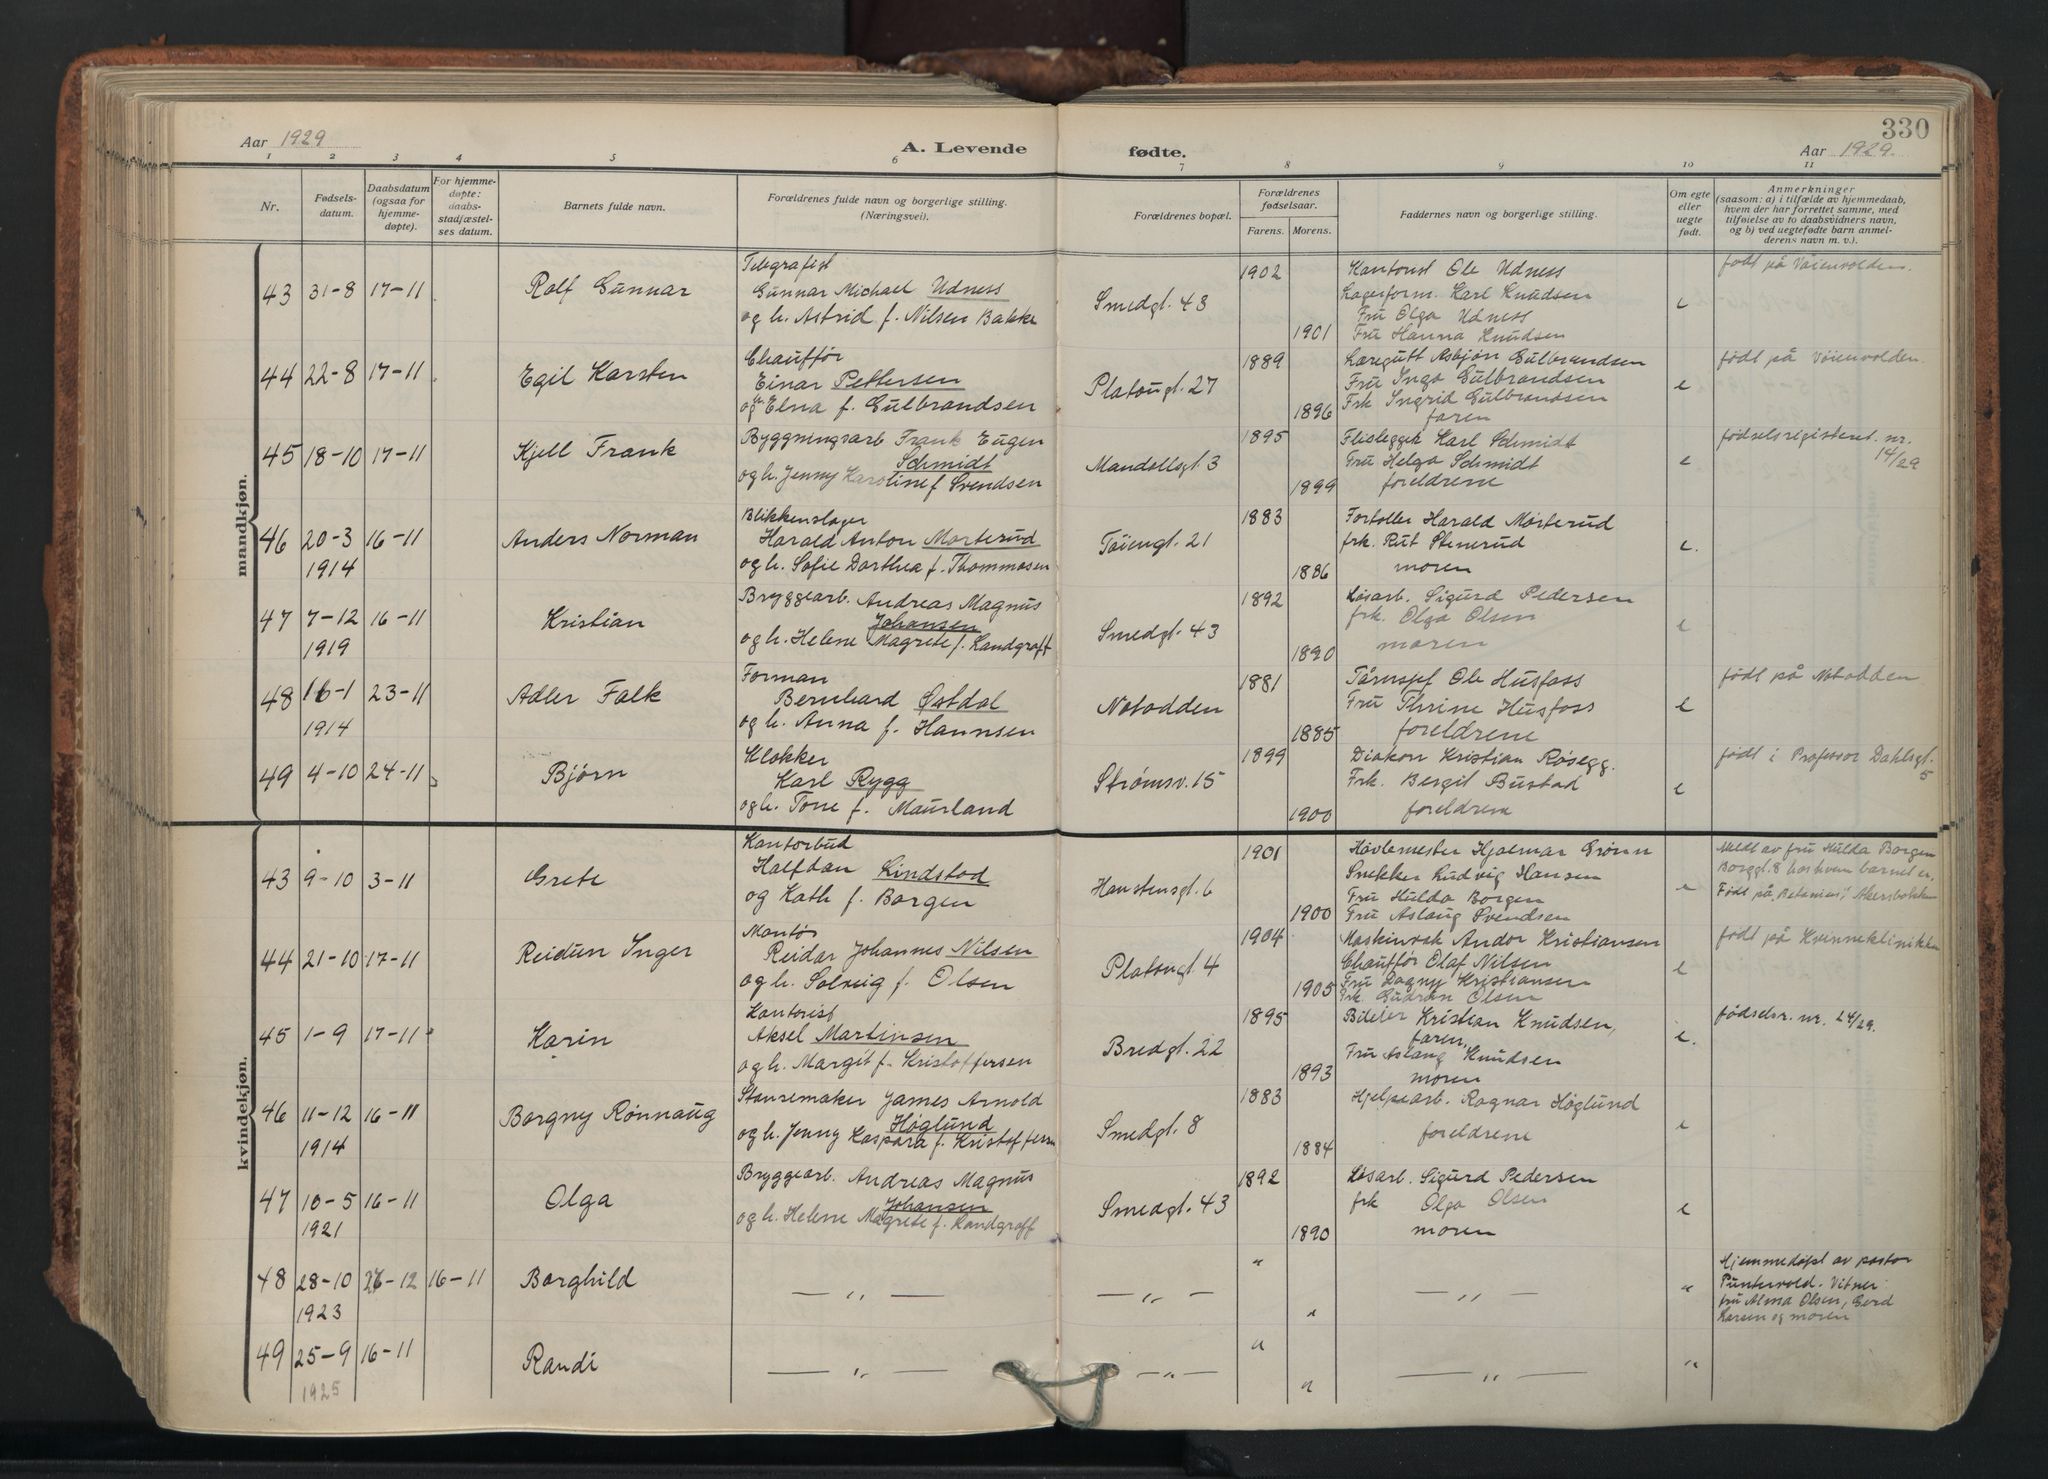 330
Aar 1929
A. Levende fødte.
Aar 1929.
1 2 3 4 5 6 7 8 9 10 11
Nr.
Fødsels-
datum.
Daabsdatum
(ogsaa for
hjemme-
døpte).
For hjemme-
døpte:
daabs-
stadfæstel-
ses datum.
Barnets fulde navn.
Forældrenes fulde navn og borgerlige stilling.
(Næringsvei).
Forældrenes bopæl.
Forældrenes
fødselsaar.
Farens. Morens.
Faddernes navn og borgerlige stilling.
Om egte
eller
uegte
født.
Anmerkninger
(saasom: a) i tilfælde av hjemmedaab,
hvem der har forrettet samme, med
tilføielse av to daabsvidners navn,
og b) ved uegtefødte barn anmel-
derens navn m. v.).
mandkjøn.
43 31-8 17-11 Rolf Gunnar
Telegrafist
Gunnar Michael Udness
og h. Astrid f. Nilsen Bakke
Smedgt. 43
1902
1901
Kontorist Ole Udness
Lagerform. Karl Knudsen
Fru Olga Udness
Fru Hanna Knudsen
e
født på Vøienvolden.
44 22-8 17-11 Egil Karsten
Chauffør
Einar Pettersen
og h. Elna f. Gulbrandsen
Platougt. 27
1889
1896
Læregutt Asbjørn Gulbrandsen
Fru Inga Gulbrandsen
Frk Ingrid Gulbrandsen
faren
e
født på Vøienvolden.
45 18-10 17-11 Kjell Frank
Byggningsarb Frank Eugen
Schmidt
og h. Jenny Karoline f Svendsen
Mandallsgt 3
1895
1899
Flislegger Karl Schmidt
Fru Helga Schmidt
foreldrene
e
fødselsregisteret nr.
14/29
46 20-3 16-11 Anders Norman
1914
Blikkenslager
Harald Anton Morterud
og h. Sofie Dorthea f. Thommasen
Tøiengt. 21
1883
1886
Fortoller Harald Morterud
frk. Rut Stenerud
moren
e.
47 7-12 16-11 Kristian
1919
Bryggearb. Andreas Magnus
Johansen
og h. Helene Magrete f. Landgraff
Smedgt. 43
1892
1890
Løsarb. Sigurd Pedersen
frk. Olga Olsen
moren
e
48 16-1 23-11 Adler Falk
1914
Forman
Bernhard Østdal
og h. Anna f. Hannsen
Notodden
1881
1885
Ole Husfoss
Fru Thrine Husfoss
foreldrene
e
født på Notodden
49 4-10 24-11 Bjørn
Klokker
Karl Rygg
og h. Tone f. Maurland
Strømsv. 15
1899
1900
Diakon Kristian Røsegg.
Frk. Bergit Bustad
foreldrene
e
født i Professor Dahlsgt.
5
kvindekjøn.
43 9-10 3-11 Grete
Kontorbud
Halfdan Lindstad
og Kath f. Borgen
Hanstensgt. 6
1901
1900
Høvlemester Hjalmar Grønn
Snekker Ludvig Hansen
Fru Hulda Borgen
Fru Aslaug Svendsen
e
Meldt av fru Hulda Borgen
Borggt. 8 hos hvem barnet er.
Født på "Betanien", Akersbakken
44 21-10 17-11 Reidun Inger
Montør
Reidar Johannes Nilsen
og h. Solveig f. Olsen
Platougt. 4
1904
1905
Andor Kristiansen
Chauffør Olaf Nilsen
Fru Dagny Kristiansen
Frk. Gudrun Olsen
e
født på Kvinneklinikken
45 1-9 17-11 Karin
Kontorist
Aksel Martinsen
og h. Margit f. Kristoffersen
Bredgt. 22
1895
1893
Bileier Kristian Knudsen,
faren,
Fru Aslaug Knudsen
moren
e.
fødselsr. nr. 24/29.
46 11-12 16-11 Borgny Rønnaug
1914
Stansemaker James Arnold
Høglund
og h. Jenny Kaspara f. Kristoffersen
Smedgt. 8
1883
1884
Hjelpearb. Ragnar Høglund
foreldrene
e
47 10-5 16-11 Olga
1921
Bryggearb. Andreas Magnus
Johansen
og h. Helene Magrete f. Landgraff
Smedgt. 43
1892
1890
Løsarb. Sigurd Pedersen
frk Olga Olsen
moren
e
48 28-10 26-12 16-11 Borghild
1923
— " —
— " —
"
"
— " —
"
Hjemmedøpt av pastor
Puntervold. Vitner:
fru Alma Olsen, Gerd
Larsen og moren
49 25-9 16-11 Randi
1925
— " —
— " —
"
"
— " —
"